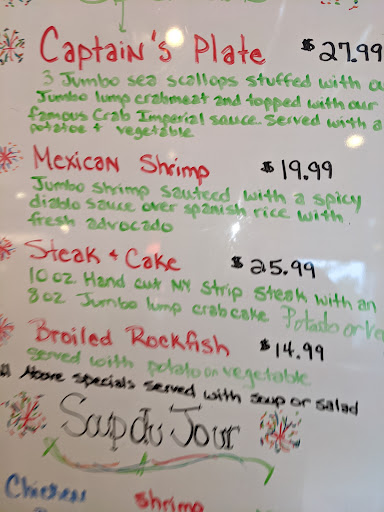 Captain's Plate $27.99
3 Jumbo sea scallops stuffed with
Jumbo lump crabmeat and topped with our
famous Crab Imperial sauce. Served with a
potatoe + vegetable
Mexican Shrimp $19.99
Jumbo shrimp sauteed with a spicy
diablo sauce over spanish rice with
fresh advocado
Steak + Cake $25.99
10 oz. Hand cut NY Strip Steak with an
8oz Jumbo lump crabcake Potato or
Broiled Rockfish $14.99
served with potato or vegetable
Above specials served with soup or salad
Soup du Jour
Chicken shrimp